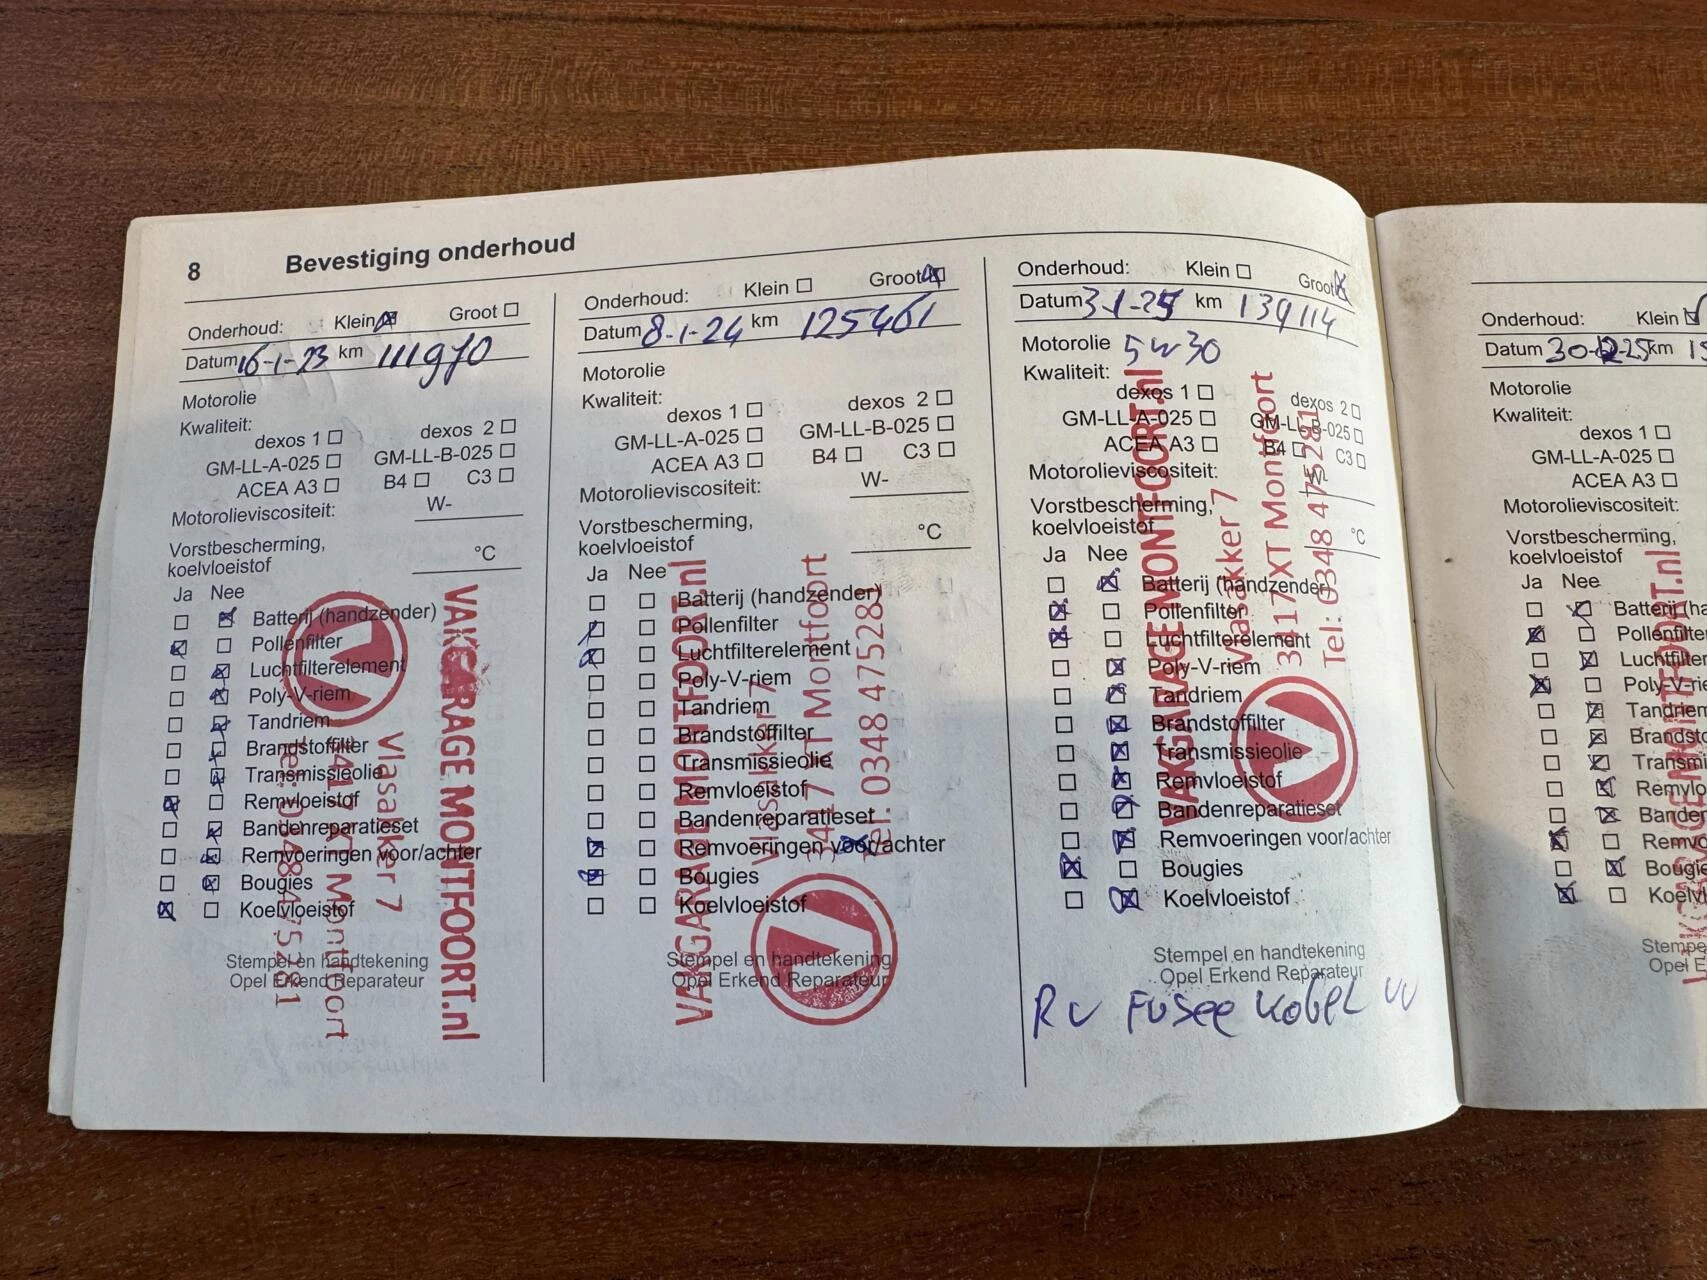 8 Bevestiging onderhoud
Onderhoud: Klein Groot
Datum 16-1-23 km 111970
Motorolie
Kwaliteit:
dexos 1 dexos 2
GM-LL-A-025 GM-LL-B-025
ACEA A3 B4 C3
Motorolieviscositeit: W-
Vorstbescherming,
koelvloeistof °C
Ja Nee
Batterij (handzender)
Pollenfilter
Luchtfilterelement
Poly-V-riem
Tandriem
Brandstoffilter
Transmissieolie
Remvloeistof
Bandenreparatieset
Remvoeringen voor/achter
Bougies
Koelvloeistof
Stempel en handtekening
Opel Erkend Reparateur
VAKGARAGE MONTFOORT.nl
Vlasakker 7
3417 XT Montfoort
Tel: 0348 475281
Onderhoud: Klein Groot
Datum 8-1-24 km 125461
Motorolie
Kwaliteit:
dexos 1 dexos 2
GM-LL-A-025 GM-LL-B-025
ACEA A3 B4 C3
Motorolieviscositeit: W-
Vorstbescherming,
koelvloeistof °C
Ja Nee
Batterij (handzender)
Pollenfilter
Luchtfilterelement
Poly-V-riem
Tandriem
Brandstoffilter
Transmissieolie
Remvloeistof
Bandenreparatieset
Remvoeringen voor/achter
Bougies
Koelvloeistof
Stempel en handtekening
Opel Erkend Reparateur
VAKGARAGE MONTFOORT.nl
Vlasakker 7
3417 XT Montfoort
Tel: 0348 475281
Onderhoud: Klein Groot
Datum 3-1-25 km 139114
Motorolie 5W30
Kwaliteit:
dexos 1 dexos 2
GM-LL-A-025 GM-LL-B-025
ACEA A3 B4 C3
Motorolieviscositeit: W-
Vorstbescherming,
koelvloeistof °C
Ja Nee
Batterij (handzender)
Pollenfilter
Luchtfilterelement
Poly-V-riem
Tandriem
Brandstoffilter
Transmissieolie
Remvloeistof
Bandenreparatieset
Remvoeringen voor/achter
Bougies
Koelvloeistof
Stempel en handtekening
Opel Erkend Reparateur
RV Fusee kogel VV
VAKGARAGE MONTFOORT.nl
Vlasakker 7
3417 XT Montfoort
Tel: 0348 475281
Onderhoud: Klein
Datum 30-12-25 km
Motorolie
Kwaliteit:
dexos 1
GM-LL-A-025
ACEA A3
Motorolieviscositeit:
Vorstbescherming,
koelvloeistof
Ja Nee
Batterij (ha
Pollenfilter
Luchtfilter
Poly-V-rie
Tandriem
Brandsto
Transmi
Remvlo
Banden
Remvo
Bougie
Koelvl
Stempe
Opel E